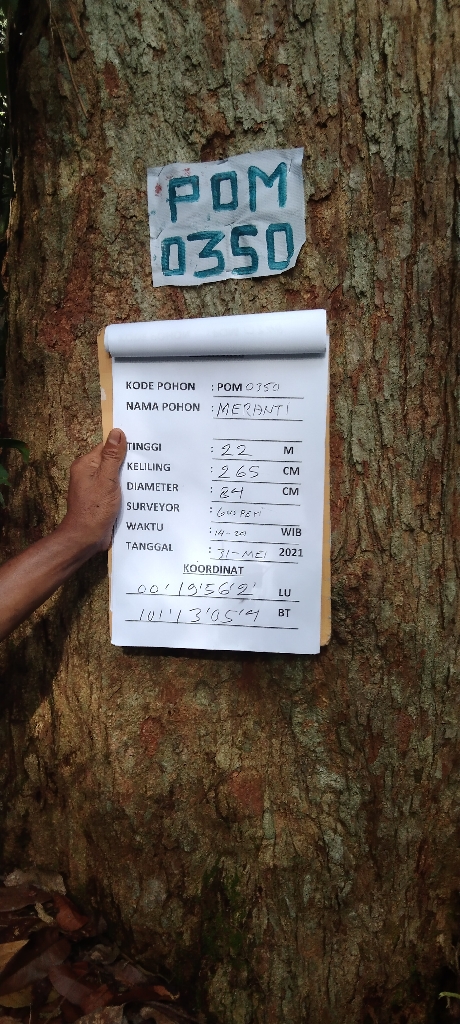 POM
0350
KODE POHON : POM 0350
NAMA POHON : MERANTI
TINGGI : 22 M
KELILING : 265 CM
DIAMETER : 84 CM
SURVEYOR :
WAKTU : 14-20 WIB
TANGGAL : 31-MEI 2021
KOORDINAT
00'19'56'2' LU
101'13'05'4 BT